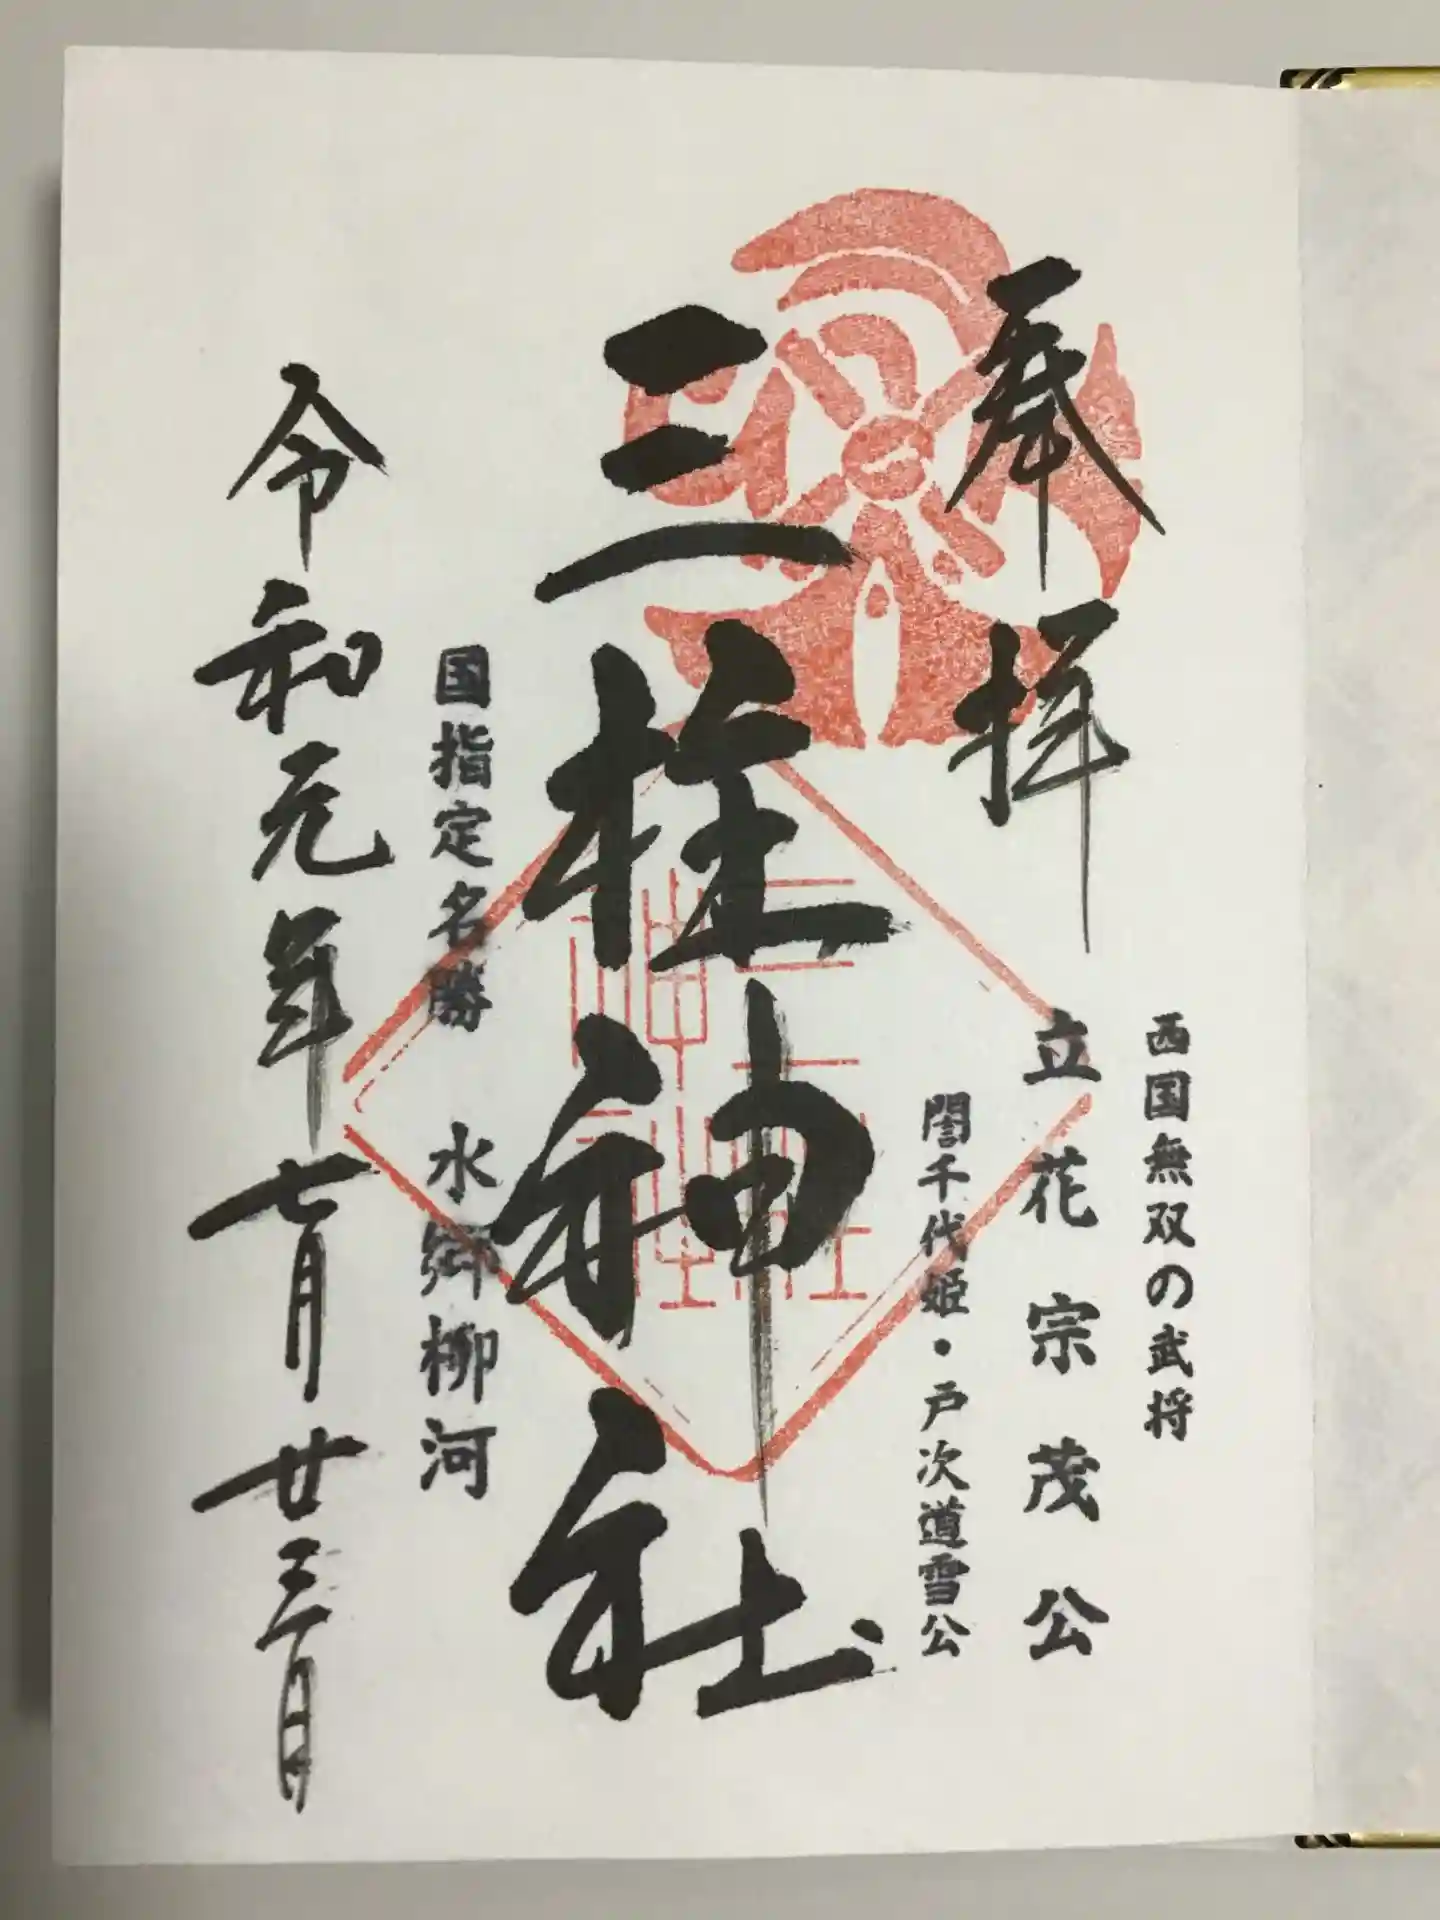 奉拝
西国無双の武将
立花宗茂公
誾千代姫・戸次道雪公
三柱神社
国指定名勝 水郷柳河
令和元年七月廿三日